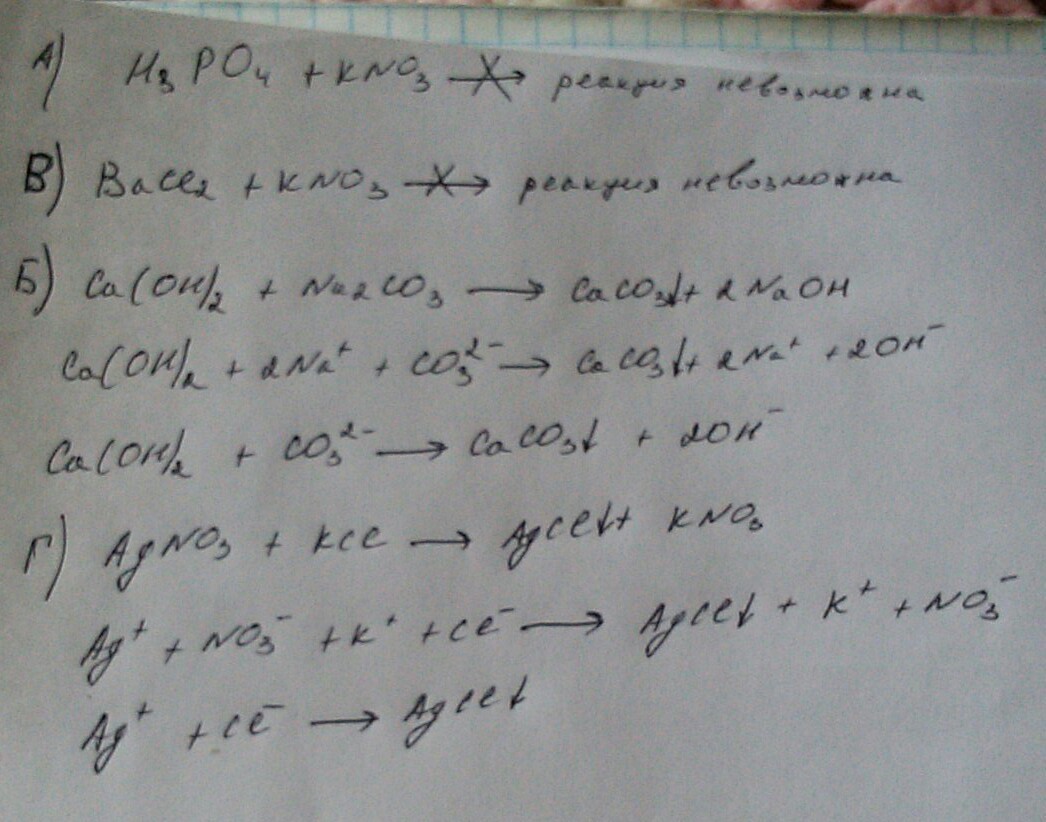 А) H₃PO₄ + KNO₃ ⇸ реакция невозможна
В) BaCl₂ + KNO₃ ⇸ реакция невозможна
Б) Ca(OH)₂ + Na₂CO₃ → CaCO₃↓ + 2NaOH
Ca(OH)₂ + 2Na⁺ + CO₃²⁻ → CaCO₃↓ + 2Na⁺ + 2OH⁻
Ca(OH)₂ + CO₃²⁻ → CaCO₃↓ + 2OH⁻
Г) AgNO₃ + KCl → AgCl↓ + KNO₃
Ag⁺ + NO₃⁻ + K⁺ + Cl⁻ → AgCl↓ + K⁺ + NO₃⁻
Ag⁺ + Cl⁻ → AgCl↓